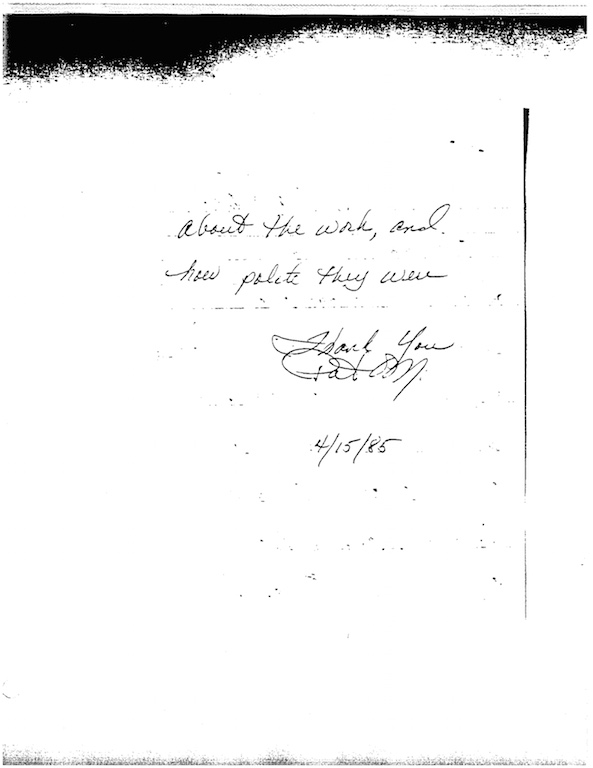 about the work, and
how polite they were
Thank You
Pat M.
4/15/85